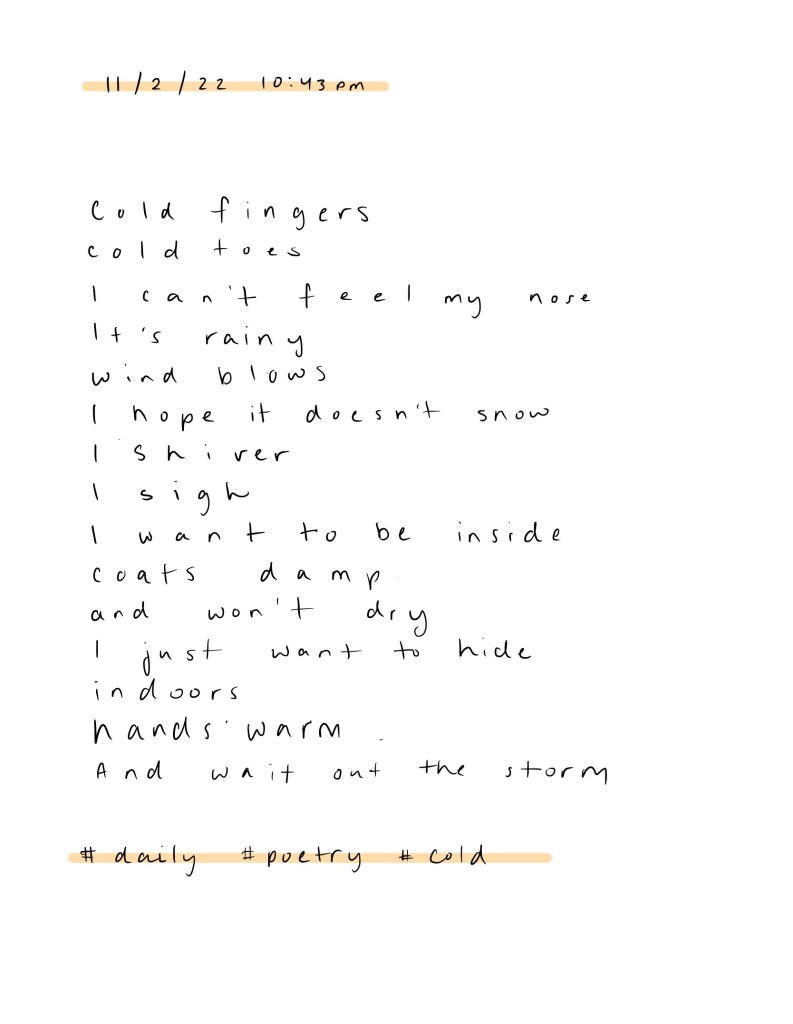 11/2/22 10:43pm
Cold fingers
cold toes
I can't feel my nose
It's rainy
wind blows
I hope it doesn't snow
I shiver
I sigh
I want to be inside
coats damp
and won't dry
I just want to hide
indoors
hands warm
And wait out the storm
#daily #poetry #cold